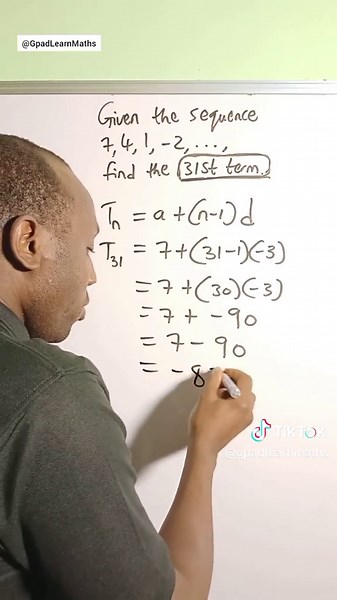 @GpadLearnMaths
Given the sequence
7, 4, 1, -2, ...,
find the 31st term.
Tn = a + (n-1)d
T31 = 7 + (31-1)(-3)
= 7 + (30)(-3)
= 7 + -90
= 7 - 90
= - 8
TikTok
@gpadlearnmaths